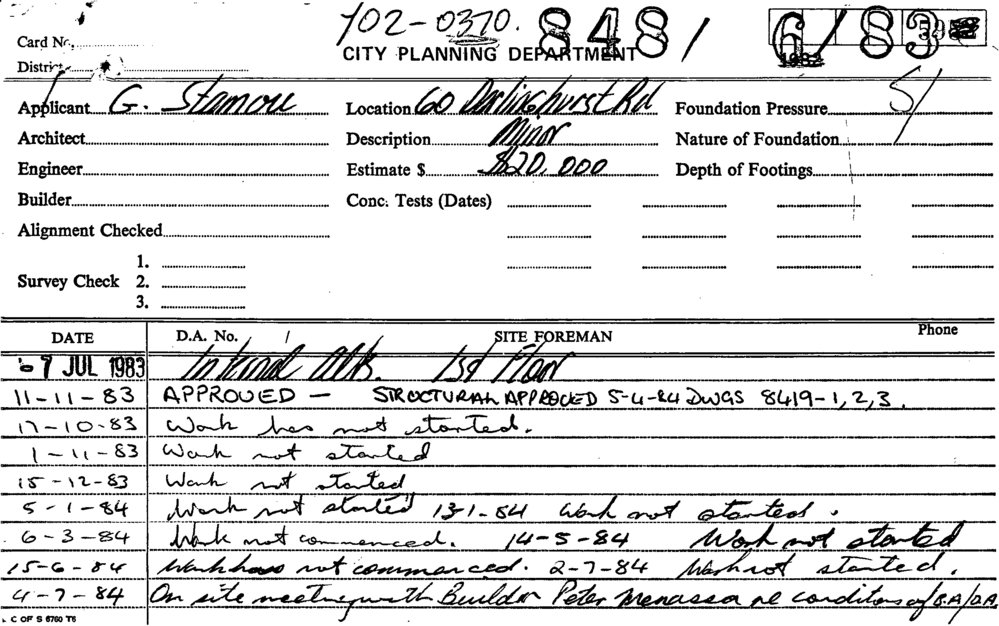 Y02-0370. 848/ 6/83
Card No.
CITY PLANNING DEPARTMENT
District
Applicant G. Stamou Location 60 Darlinghurst Rd Foundation Pressure S/
Architect Description Minor Nature of Foundation
Engineer Estimate $ $20,000 Depth of Footings
Builder Conc. Tests (Dates)
Alignment Checked
1.
Survey Check 2.
3.
DATE D.A. No. / SITE FOREMAN Phone
7 JUL 1983 Internal Alts. 1st Floor
11-11-83 APPROVED - STRUCTURAL APPROVED 5-4-84 DWGS 8419-1,2,3.
17-10-83 Work has not started.
1-11-83 Work not started
15-12-83 Work not started
5-1-84 Work not started 13-1-84 Work not started.
6-3-84 Work not commenced. 14-5-84 Work not started
15-6-84 Work has not commenced. 2-7-84 Work not started.
4-7-84 On site meeting with Builder Peter Menassa re conditions of B.A/D.A
C OF S 6760 T6